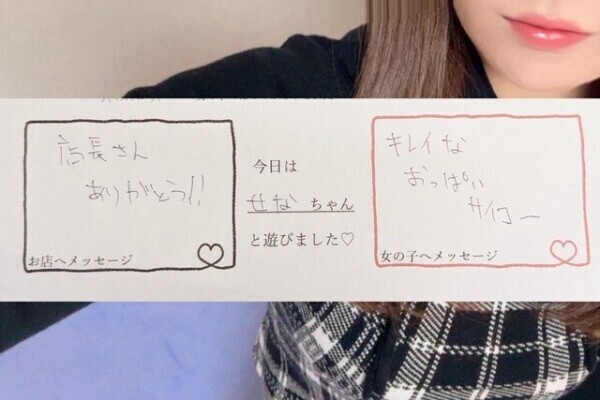 店長さん
ありがとう!!
お店へメッセージ
今日は
せな ちゃん
と遊びました♡
キレイな
おっぱい
サイコー
女の子へメッセージ